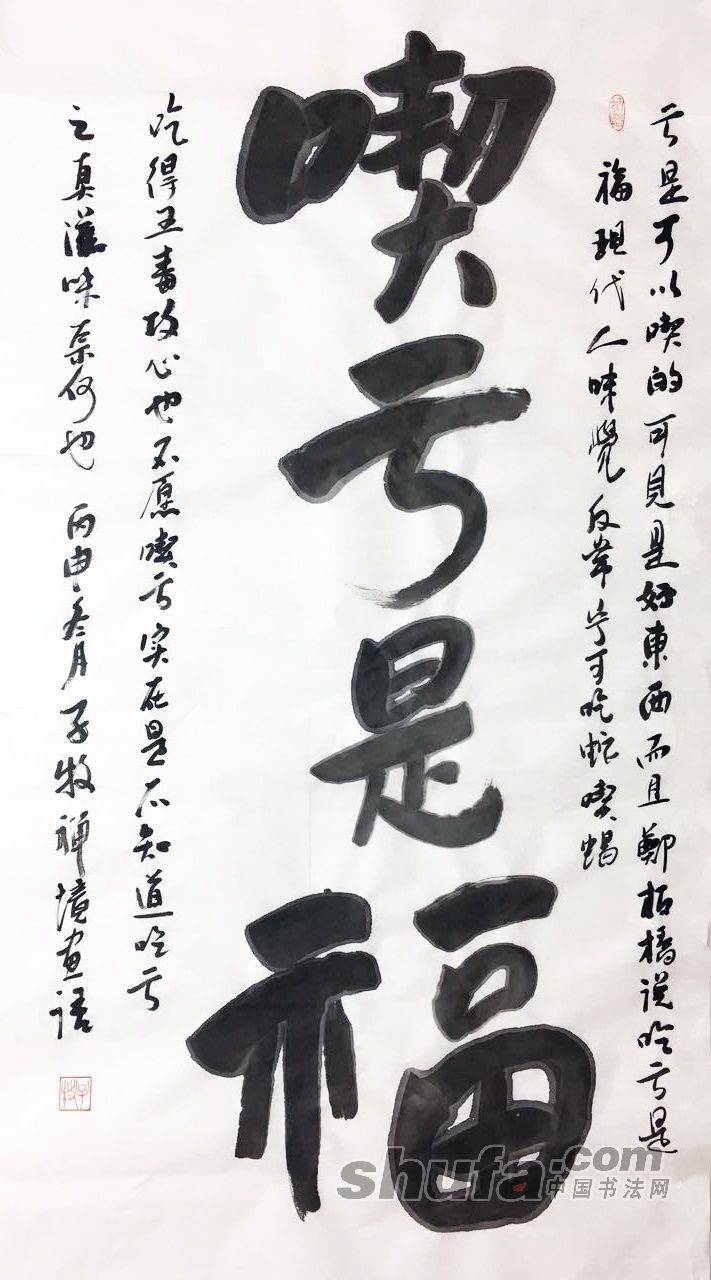 亏是可以喫的可見是好東西而且鄭板橋说吃亏是
福現代人味覺反常宁可吃蛇喫蝎
喫亏是福
吃得五毒攻心也不愿喫亏实在是不知道吃亏
之真滋味奈何也 丙申冬月子牧禅境画语
shufa.com
中国书法网